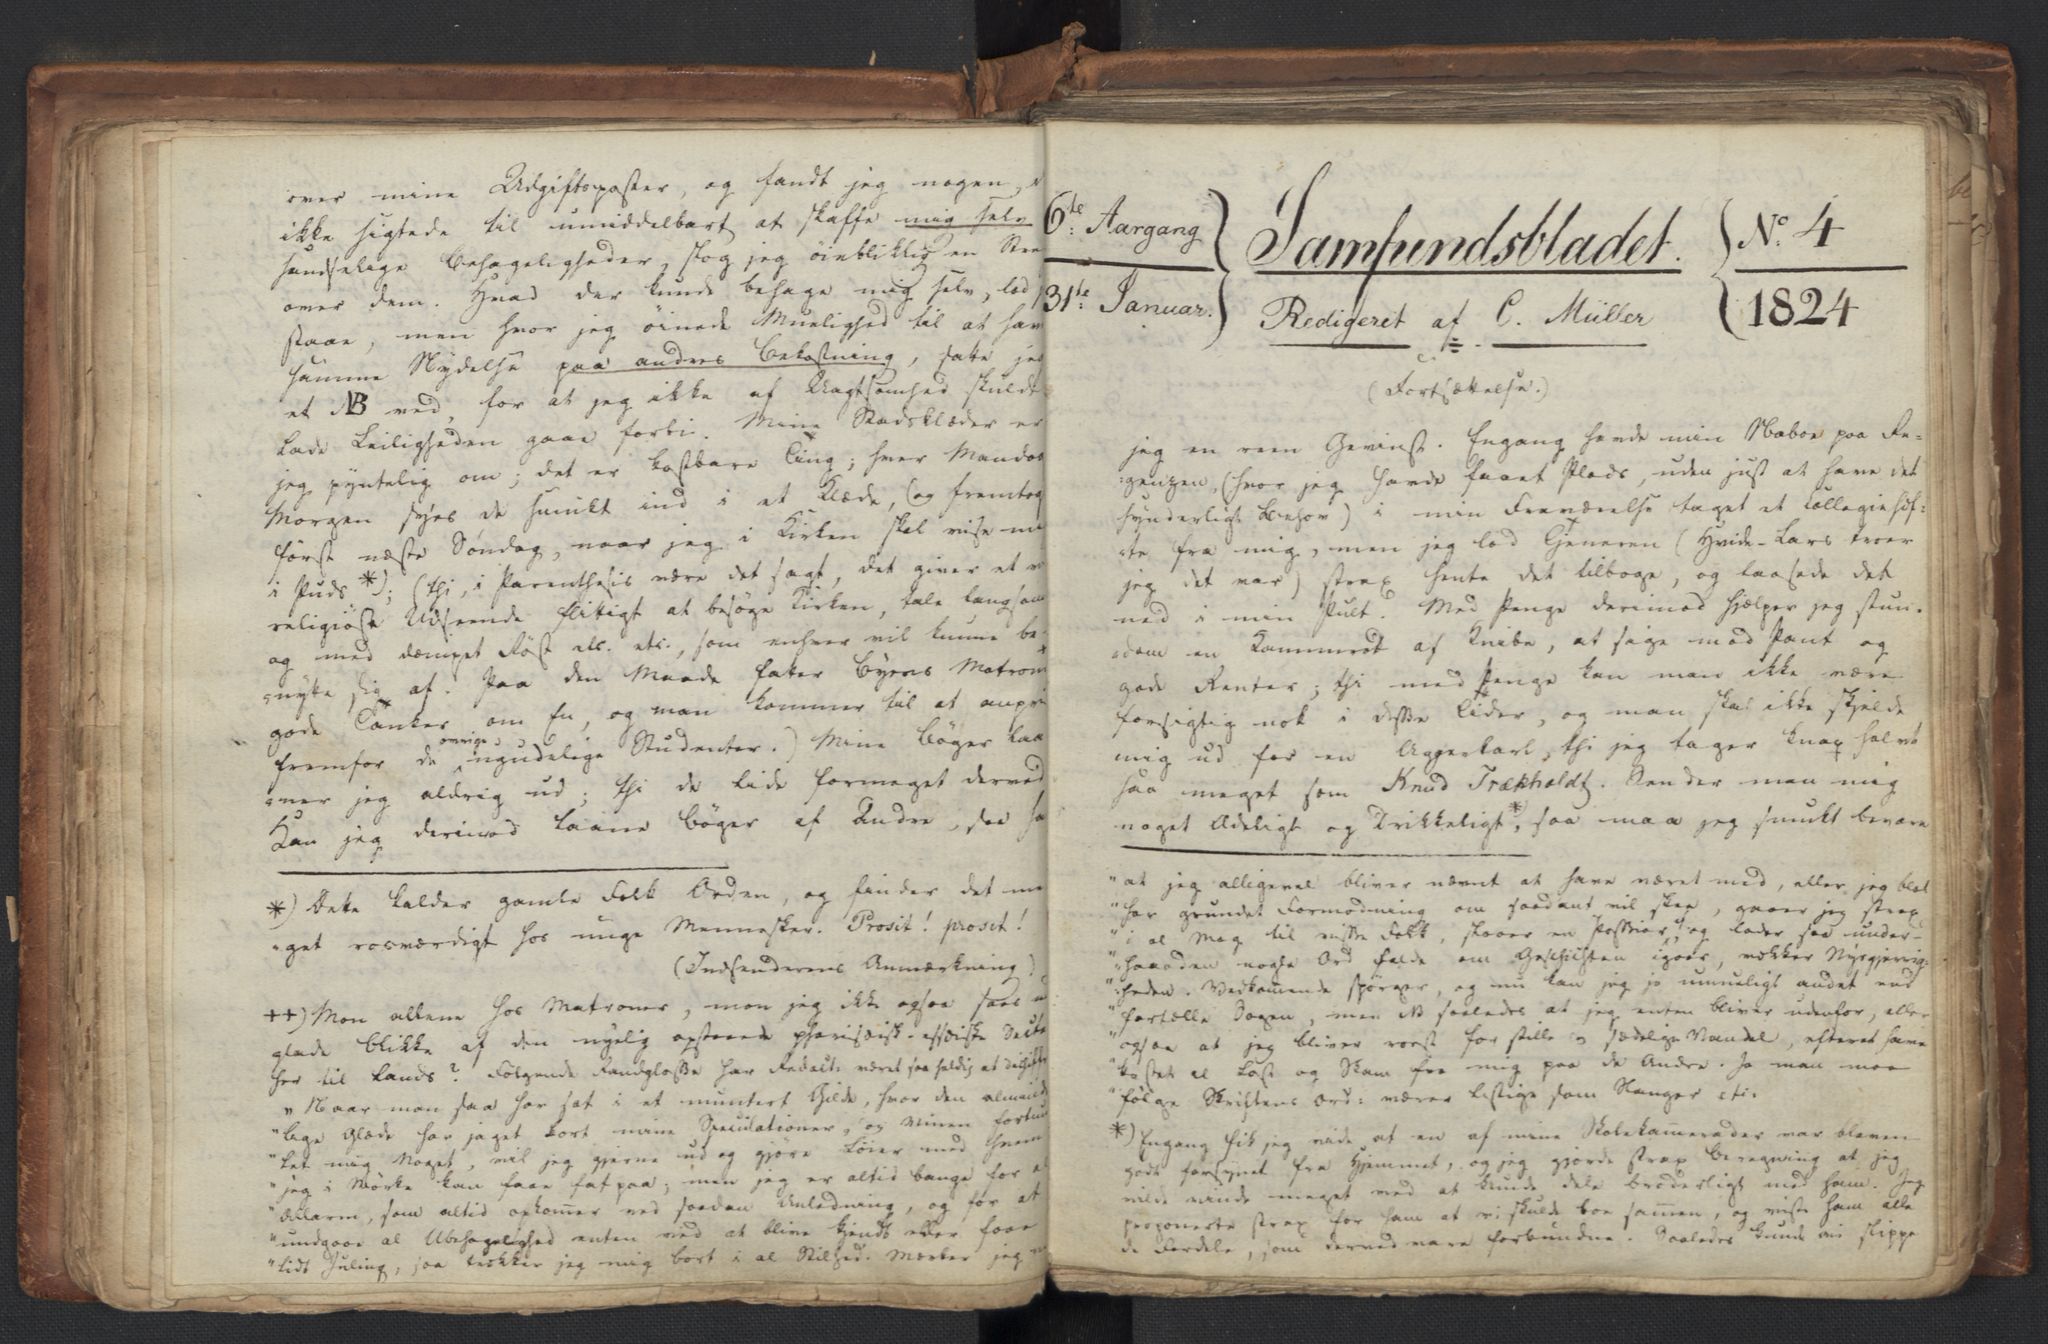 over mine Udgiftsposter, og fandt jeg nogen,
ikke sigtede til umiddelbart at skaffe mig selv
sandselige Behageligheder, slog jeg öieblikkelig en Streg
over dem. Hvad der kunde behage mig selv, lod
staae, men hvor jeg öinede Muelighed til at have
samme Nydelse paa andres Bekostning, satte jeg
et NB ved, for at jeg ikke af Uagtsomhed skulde
lade Leiligheden gaae forbi. Mine Stadsklæder er
jeg pyntelig om; det er kostbare Ting; hver Mandag
Morgen syes de smukt ind i et Klæde, (og fremtages
först næste Söndag, naar jeg i Kirken skal vise mig
i Puds *); (thi, i Parenthesis være det sagt, det giver et
religiöst Udseende flittigt at besöge Kirken, tale langsomt
og med dæmpet Röst etc. etc., som enhver vil kunne be-
=nytte sig af. Paa den Maade fatter Byens Matroner
gode Tanker om En, og man kommer til at
fremfor de övrige ugudelige Studenter.) Mine Böger laa-
=ner jeg aldrig ud; thi de lide formeget derved
Kan jeg derimod laane Böger af Andre, saa har
*) Dette kalder gamle Folk Orden, og finder det me-
=get rosværdigt hos unge Mennesker. Prosit! prosit!
(Indsenderens Anmærkning)
++) Mon allene hos Matroner, mon jeg ikke ogsaa
glade Blikke af den nyelig opstaaede pharisæisk-essæiske Sect
her til Lands? Fölgende Randglosse har Redakt: været saa heldig at
"Naar man saa har sat i et muntert Gilde, hvor den almind-
"lige Glæde har jaget bort mine Speculationer, og Vinen
"let mig Noget, vil jeg gjerne ud og gjöre Löier med hvem
"jeg i Mörke kan faae fat paa; men jeg er altid bange for
"Allarm, som altid opkommer ved saadan Anledning, og for at
"undgaae al Ubehagelighed enten ved at blive kjendt eller faae
"lidt Juling, saa trækker jeg mig bort i al Stilhed. Mærker jeg
6te: Aargang
31te: Januar.
Samfundsbladet.
Redigeret af C. Müller
No. 4
1824
(Fortsættelse.)
jeg en reen Gevinst. Engang havde min Naboe paa Re-
=gentzen, (hvor jeg havde faaet Plads, uden just at have det
synderligt Behov) i min Fraværelse taget et Collegiehef-
=te fra mig, men jeg lod Gjeneren (Hvide-Lars troer
jeg det var) strax hente det tilbage, og laasede det
ned i min Pult. Med Penge derimod hjælper jeg stun-
=dom en Kammerat af Knibe, at sige mod Pant og
gode Renter; thi med Penge kan man ikke være
forsigtig nok i disse Tider, og man skal ikke skjelde
mig ud for en Aagerkarl, thi jeg tager knap halvt
saa meget som Knud Trækholdt. Sender man mig
noget Ædeligt og Drikkeligt*, saa maa jeg smukt bevare
"at jeg alligevel bliver nævnt at have været med, eller jeg blot
"har grundet Formodning om saadant vil skee, gaaer jeg strax
"i al Mag til visse Folk, slaaer en Passiar, og lader saa under-
"haanden nogle Ord falde om Geschichten igaar, vækker Nysgjerrig-
"heden. Vedkommende spörger, og nu kan jeg jo umueligt andet end
"fortælle Sagen, men NB saaledes at jeg enten bliver udenfor, eller
"ogsaa at jeg bliver roest for stille og sædelig Vandel, efterat have
"kastet al Last og Skam fra mig paa de Andre. Ja man maa
"fölge Skriftens Ord: værer listige som Slanger etc.
*) Engang fik jeg vide at en af mine Skolekammerader var bleven
godt forsynet fra Hjemmet, og jeg gjorde strax Beregning at jeg
vilde vinde meget ved at kunde dele broderligt med ham. Jeg
proponerte strax for ham at vi skulde boe sammen, og viste ham alle
de Fordele, som derved vare forbundne. Saaledes kunde vi slippe